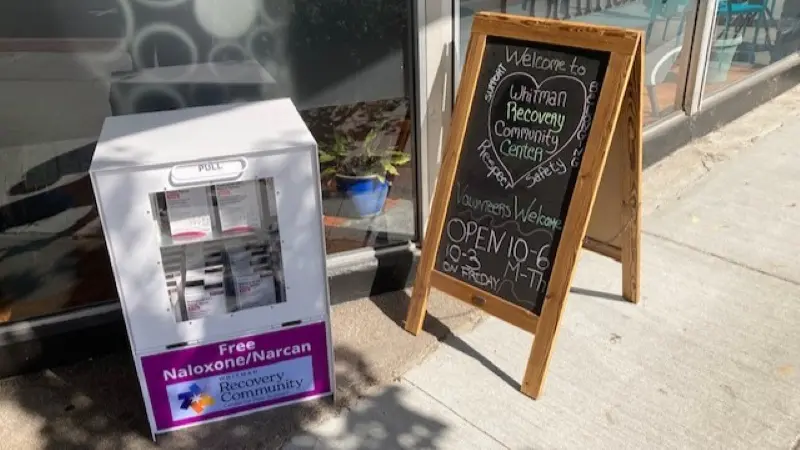 PULL
Free
Naloxone/Narcan
WHITMAN
Recovery
Community
Welcome to
SUPPORT
Whitman
Recovery
Community
Center
Respect
Safety
Volunteers Welcome
OPEN 10-6
10-3 M-Th
ON FRIDAY